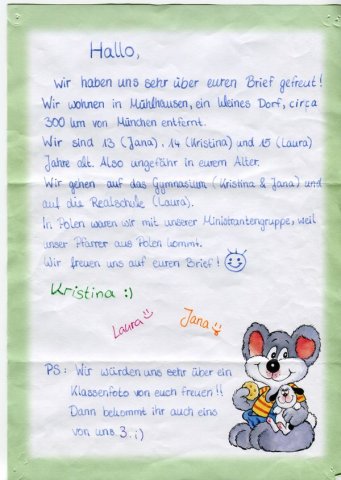 Hallo,
Wir haben uns sehr über euren Brief gefreut!
Wir wohnen in Mühlhausen, ein kleines Dorf, circa
300 km von München entfernt.
Wir sind 13 (Jana), 14 (Kristina) und 15 (Laura)
Jahre alt. Also ungefähr in eurem Alter.
Wir gehen auf das Gymnasium (Kristina & Jana) und
auf die Realschule (Laura).
In Polen waren wir mit unserer Ministrantengruppe, weil
unser Pfarrer aus Polen kommt.
Wir freuen uns auf euren Brief!
Kristina :)
Laura
Jana
PS: Wir würden uns sehr über ein
Klassenfoto von euch freuen!!
Dann bekommt ihr auch eins
von uns 3. ;)